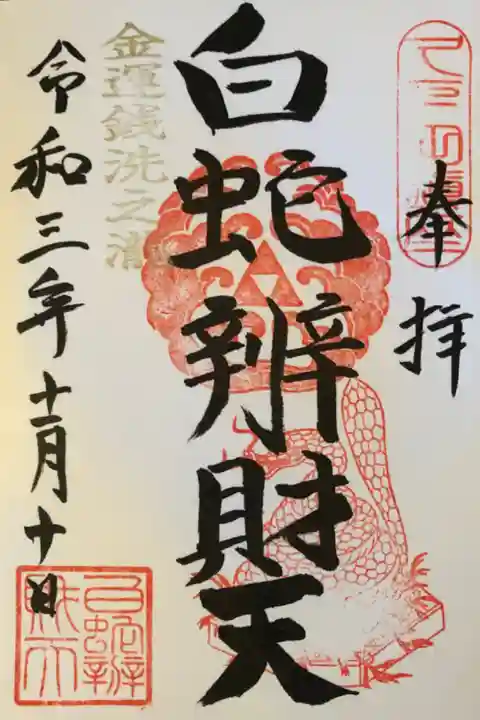 奉拝
白蛇辨財天
金運銭洗之瀧
令和三年十一月十日
白蛇辨
財天